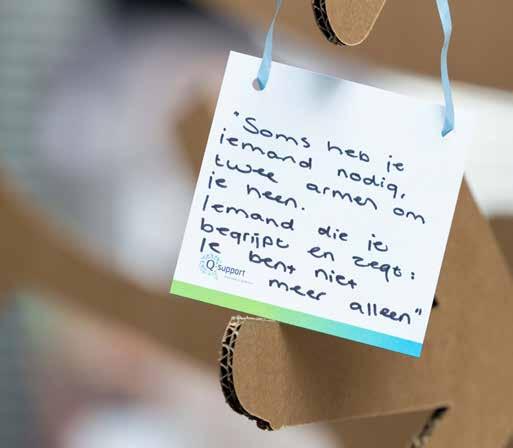 "Soms heb je
iemand nodig,
twee armen om
je heen.
Iemand die je
begrijpt en zegt:
Je bent niet
meer alleen"
Q support